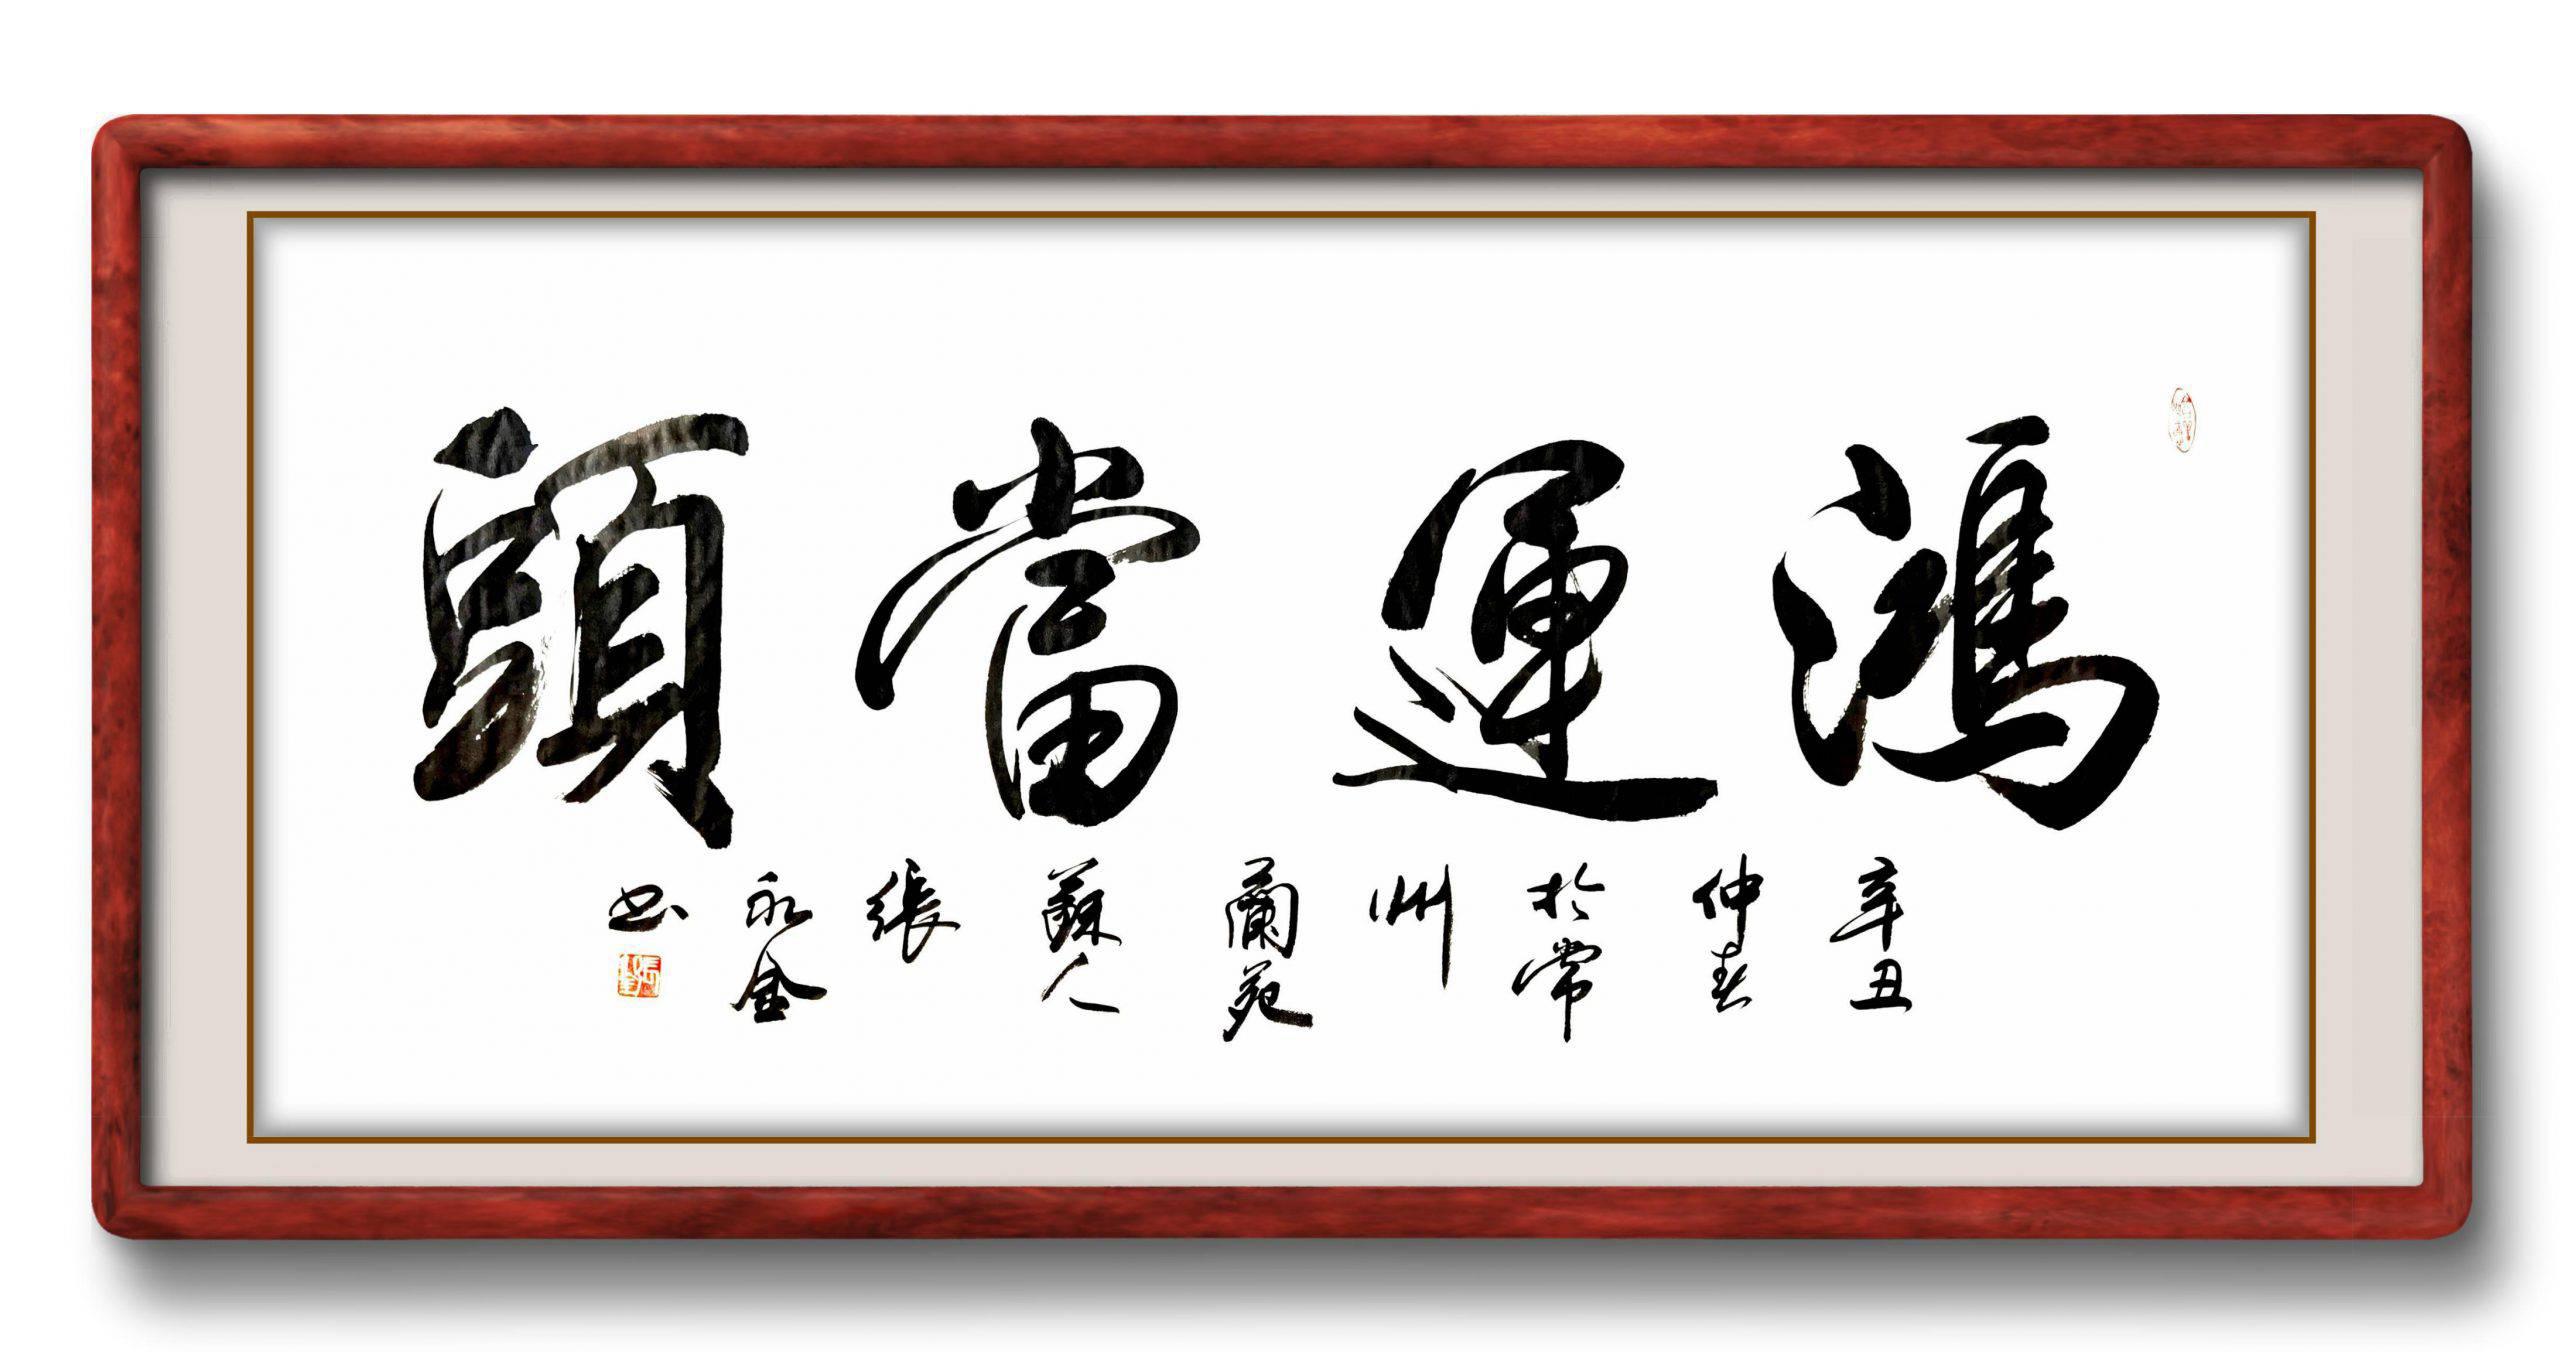 鴻運當頭
辛丑
仲春
於常
州
蘭苑
蘇人
張
永金
书